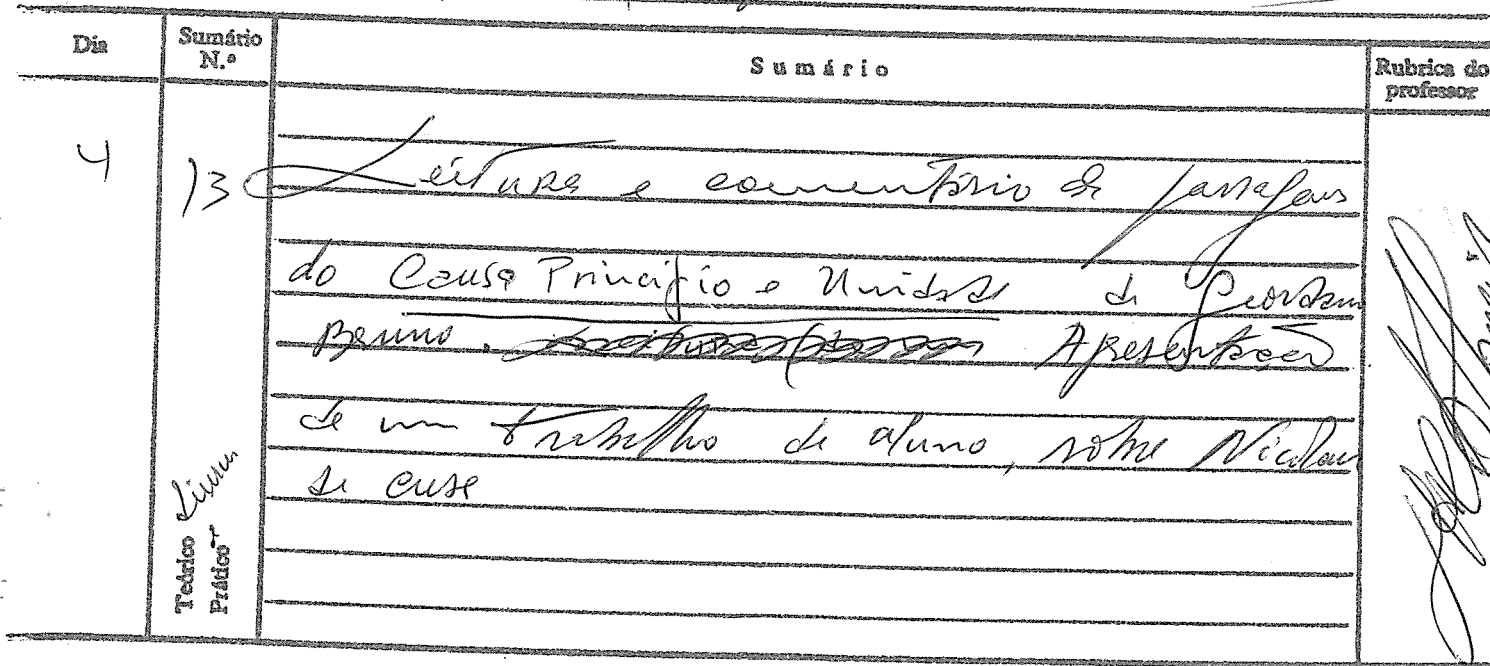 Dia Sumário N.º Sumário Rubrica do professor
4 13 Leitura e comentário de passagens
do Causa Princípio e Unidade de Giordano
Bruno. Apresentação
de um trabalho de aluno, sobre Nicolau
de Cusa
Teórico
Prático